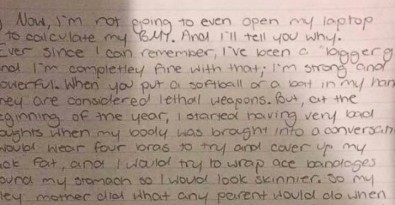 Now, I'm not going to even open my laptop
to calculate my BMI. And I'll tell you why.
Ever since I can remember, I've been a "bigger g
and I'm completley fine with that; I'm strong and
powerful. When you put a softball or a bat in my han
they are considered lethal weapons. But, at the
beginning of the year, I started having very bad
thoughts when my body was brought into a conversati
would wear four bras to try and cover up my
back fat, and I would try to wrap ace bandages
around my stomach so I would look skinnier. So my
mother did what any parent would do when